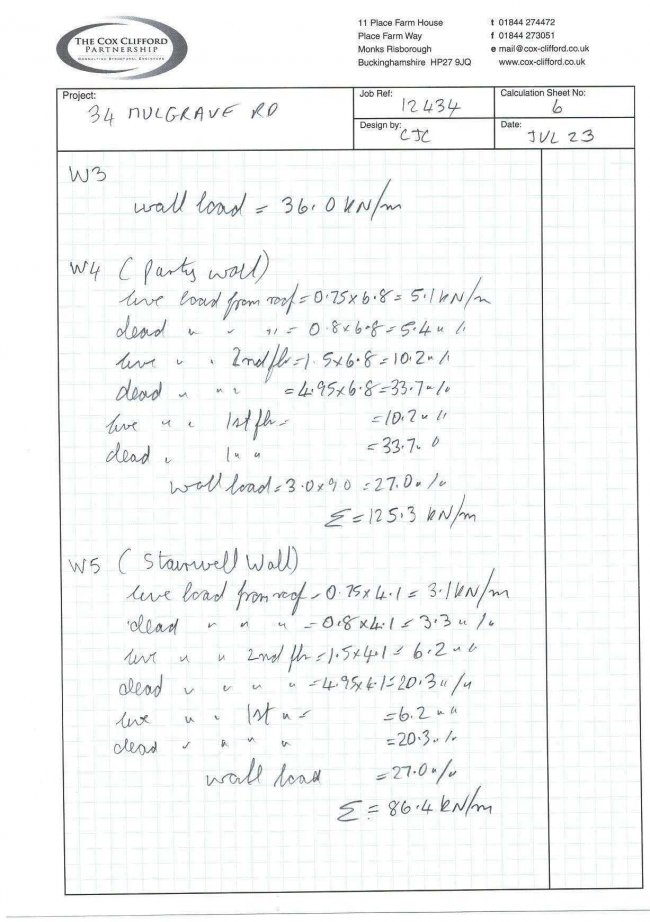 THE COX CLIFFORD
PARTNERSHIP
CONSULTING STRUCTURAL ENGINEERS
11 Place Farm House
Place Farm Way
Monks Risborough
Buckinghamshire HP27 9JQ
t 01844 274472
f 01844 273051
e mail@cox-clifford.co.uk
www.cox-clifford.co.uk
Project:
34 MULGRAVE RD
Job Ref:
12434
Calculation Sheet No:
6
Design by:
CJC
Date:
JUL 23
W3
wall load = 36.0 kN/m
W4 (party wall)
live load from roof = 0.75 x 6.8 = 5.1 kN/m
dead " " " = 0.8 x 6.8 = 5.4 " "
live " " 2nd flr = 1.5 x 6.8 = 10.2 " "
dead " " " = 4.95 x 6.8 = 33.7 " "
live " " 1st flr = = 10.2 " "
dead " " " " = 33.7 "
wall load = 3.0 x 9.0 = 27.0 " "
Σ = 125.3 kN/m
W5 (Stairwell Wall)
live load from roof = 0.75 x 4.1 = 3.1 kN/m
dead " " " = 0.8 x 4.1 = 3.3 " "
live " " 2nd flr = 1.5 x 4.1 = 6.2 " "
dead " " " " = 4.95 x 4.1 = 20.3 " "
live " " 1st " = = 6.2 " "
dead " " " " = 20.3 " "
wall load = 27.0 " "
Σ = 86.4 kN/m